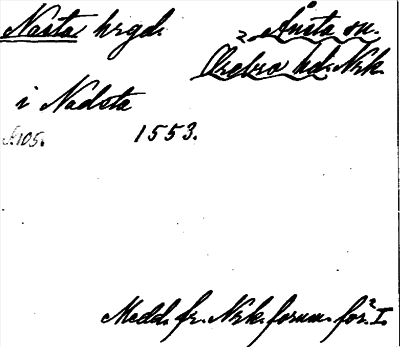 Nasta hrgd. Ånsta sn.
Örebro hd. Nrk.
i Nadsta
1553.
Medd. fr. Nrk. fornm. för. I.